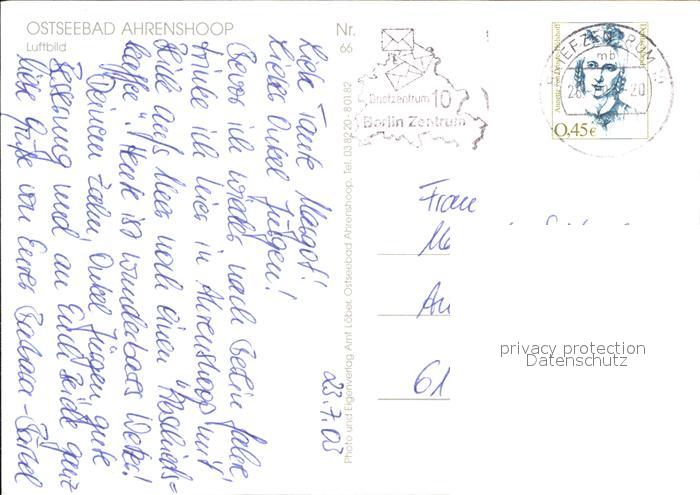 OSTSEEBAD AHRENSHOOP
Luftbild
Nr.
66
Liebe Tante Margot!
Lieber Onkel Jürgen!
Bevor ich wieder nach Berlin fahre,
trinke ich hier in Ahrenshoop mit
Blick aufs Meer noch einen "Abschieds=
kaffee". Heute ist wunderbares Wetter!
Deinem Zahn, Onkel Jürgen, gute
Besserung und an Euch beide ganz
liebe Grüße von Eurer Barbara-Bärbel
23.7.03
Photo und Eigenverlag Arnt Löber, Ostseebad Ahrenshoop, Tel. 038220-80182
Briefzentrum 10
Berlin Zentrum
BRIEFZENTRUM 10
mb
20
0,45€
Frau
61
privacy protection
Datenschutz